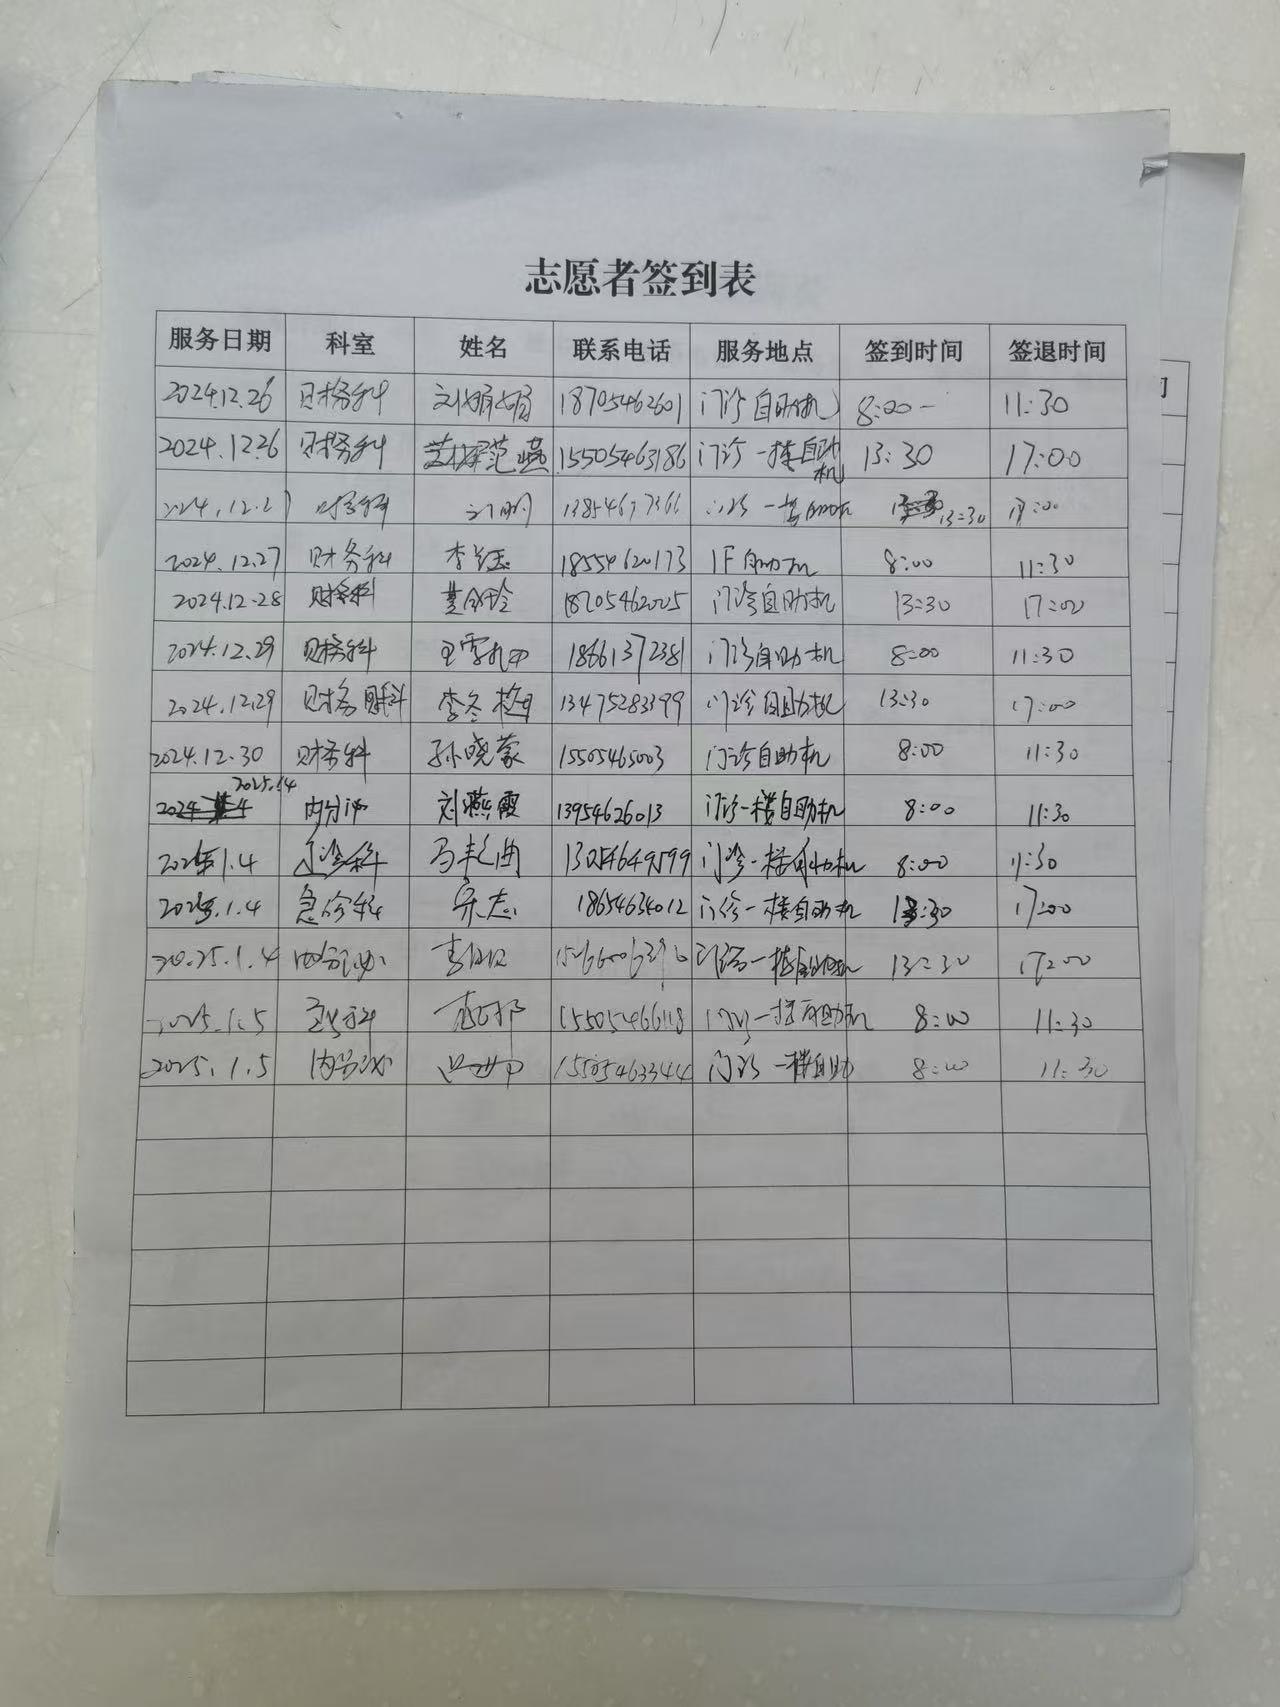 志愿者签到表
服务日期 科室 姓名 联系电话 服务地点 签到时间 签退时间
2024.12.26 财务科 刘娟娟 18705462601 门诊自助机 8:00- 11:30
2024.12.26 财务科 范燕 15505463186 门诊一楼自助机 13:30 17:00
2024.12.27 财务科 13:30 17:00
2024.12.27 财务科 李 18554620173 1F自助机 8:00 11:30
2024.12.28 财务科 18705462005 门诊自助机 13:30 17:00
2024.12.29 财务科 王雪 18661372381 门诊自助机 8:00 11:30
2024.12.29 财务科 李冬梅 13475283399 门诊自助机 13:30 17:00
2024.12.30 财务科 孙晓蒙 15505465003 门诊自助机 8:00 11:30
2025.1.4 内分泌 刘燕霞 13954626013 门诊一楼自助机 8:00 11:30
2025.1.4 急诊科 马 13054649599 门诊一楼自助机 8:00 11:30
2025.1.4 急诊科 宋志 18654634012 门诊一楼自助机 13:30 17:00
2025.1.4 内分泌 门诊一楼自助机 13:30 17:00
2025.1.5 急诊科 15505466118 门诊一楼自助机 8:00 11:30
2025.1.5 内分泌 15505463344 门诊一楼自助 8:00 11:30